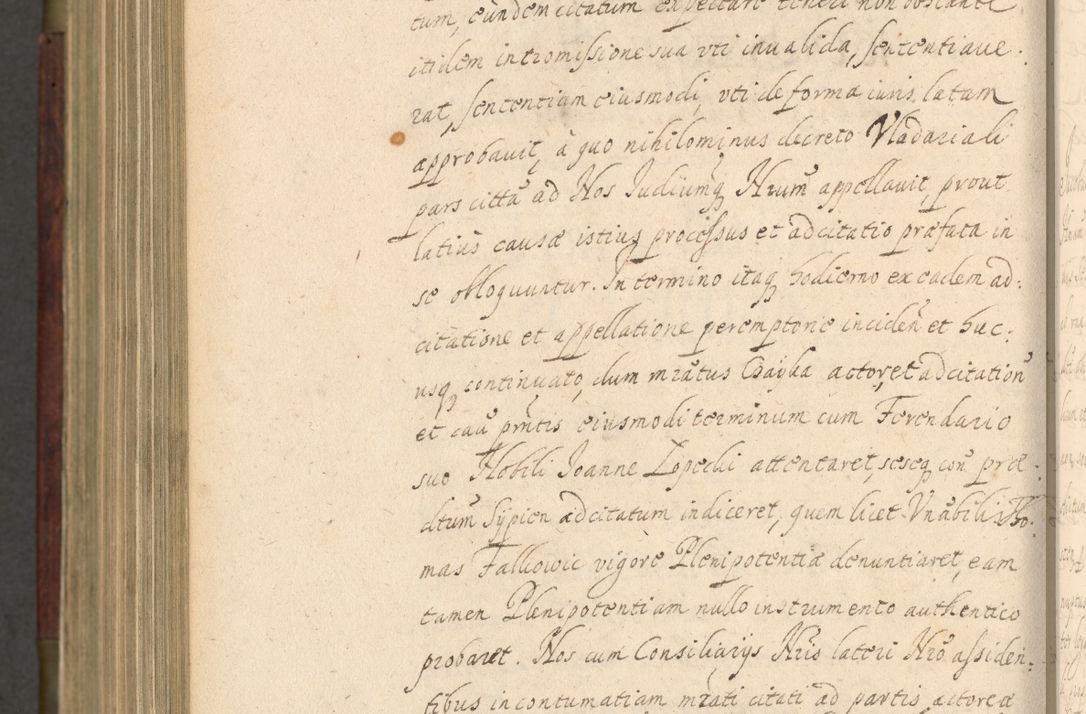 tum, eundem citatum expectare teneri non obstante
itidem intromissione sua vti inualida, sententiaue:
rat, sententiam eiusmodi, vti de forma iuris latam
approbauit, à quo nihilominus decreto Vladariali
pars cittã ad Nos Iudiumq Nrum appellauit, prout
latius causæ istius processus et adcitatio præfata in
se obloquuntur. In termino itaq hodierno ex eadem ad:
citatione et appellatione peremptorie inciden et huc:
usq continuato, dum mratus Czayka actor, et adcitation
et cau prntis eiusmodi terminum cum Ferendario
suo Nobili Joanne Lopecki attentaret, seseq con præ:
ditum Sypien adcitatum indiceret, quem licet Vnabilis Tho:
mas Falkowic vigore Plenipotentiæ denuntiaret, eam
tamen Plenipotentiam nullo instrumento authentico
probaret. Nos cum Consiliarijs Nris lateri Nro assiden:
tibus in contumatiam mrati citati ad partis actoreæ